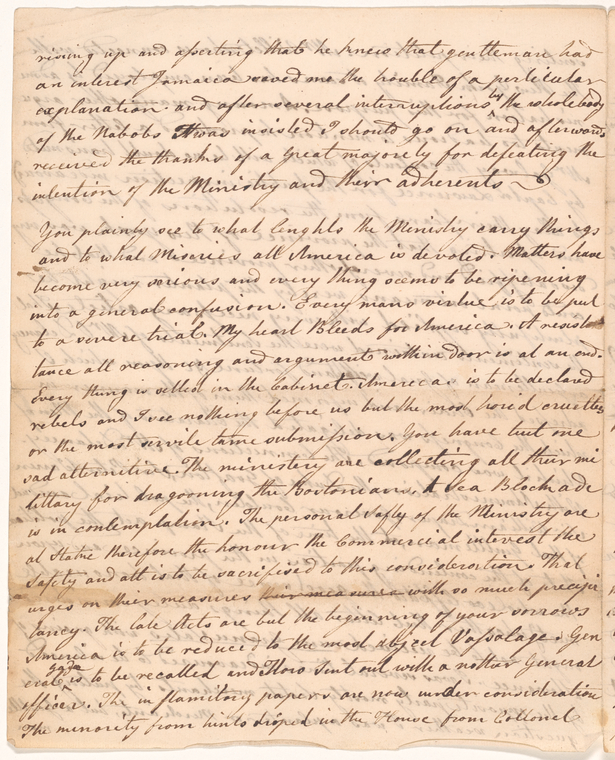 rising up and aserting that he knew that gentleman had
an interest Jamaica saved me the trouble of a perticular
explanation and after several interruptions by the whole body
of the Nabobs it was insisted I should go on and afterwards
received the thanks of a Great majorety for defeating the
intention of the Ministry and their adherents
You plainly see to what lenghts the Ministry carry things
and to what Miseries all America is devoted. Matters have
become very serious and every thing seems to be ripening
into a general confusion. Every mans virtue is to be put
to a severe trial. My heart Bleeds for America. A resis
tance all reasoning and argument within door is at an end.
Every thing is setled in the Cabinet. America is to be declared
rebels and I see nothing before us but the most horid cruelties
or the most servile tame submission. You have but one
sad alternitive. The ministery are collecting all their mi
littary for dragooning the Bostonians. A Sea Blockade
is in contemplation. The personal safty of the Ministry are
at Stake therefore the honour the Commercial interest the
Safety and all is to be sacrifised to this consideration. That
urges on their measures their measures with so much precipi
tancy. The late Acts are but the beginning of your sorrows
America is to be reduced to the most abject Vassalage. Gen
eral Gage is to be recalled and Thos Sent out with a nother General
officer. The in flamitory papers are now under consideration
The minority from hints droped in the House from Collonel